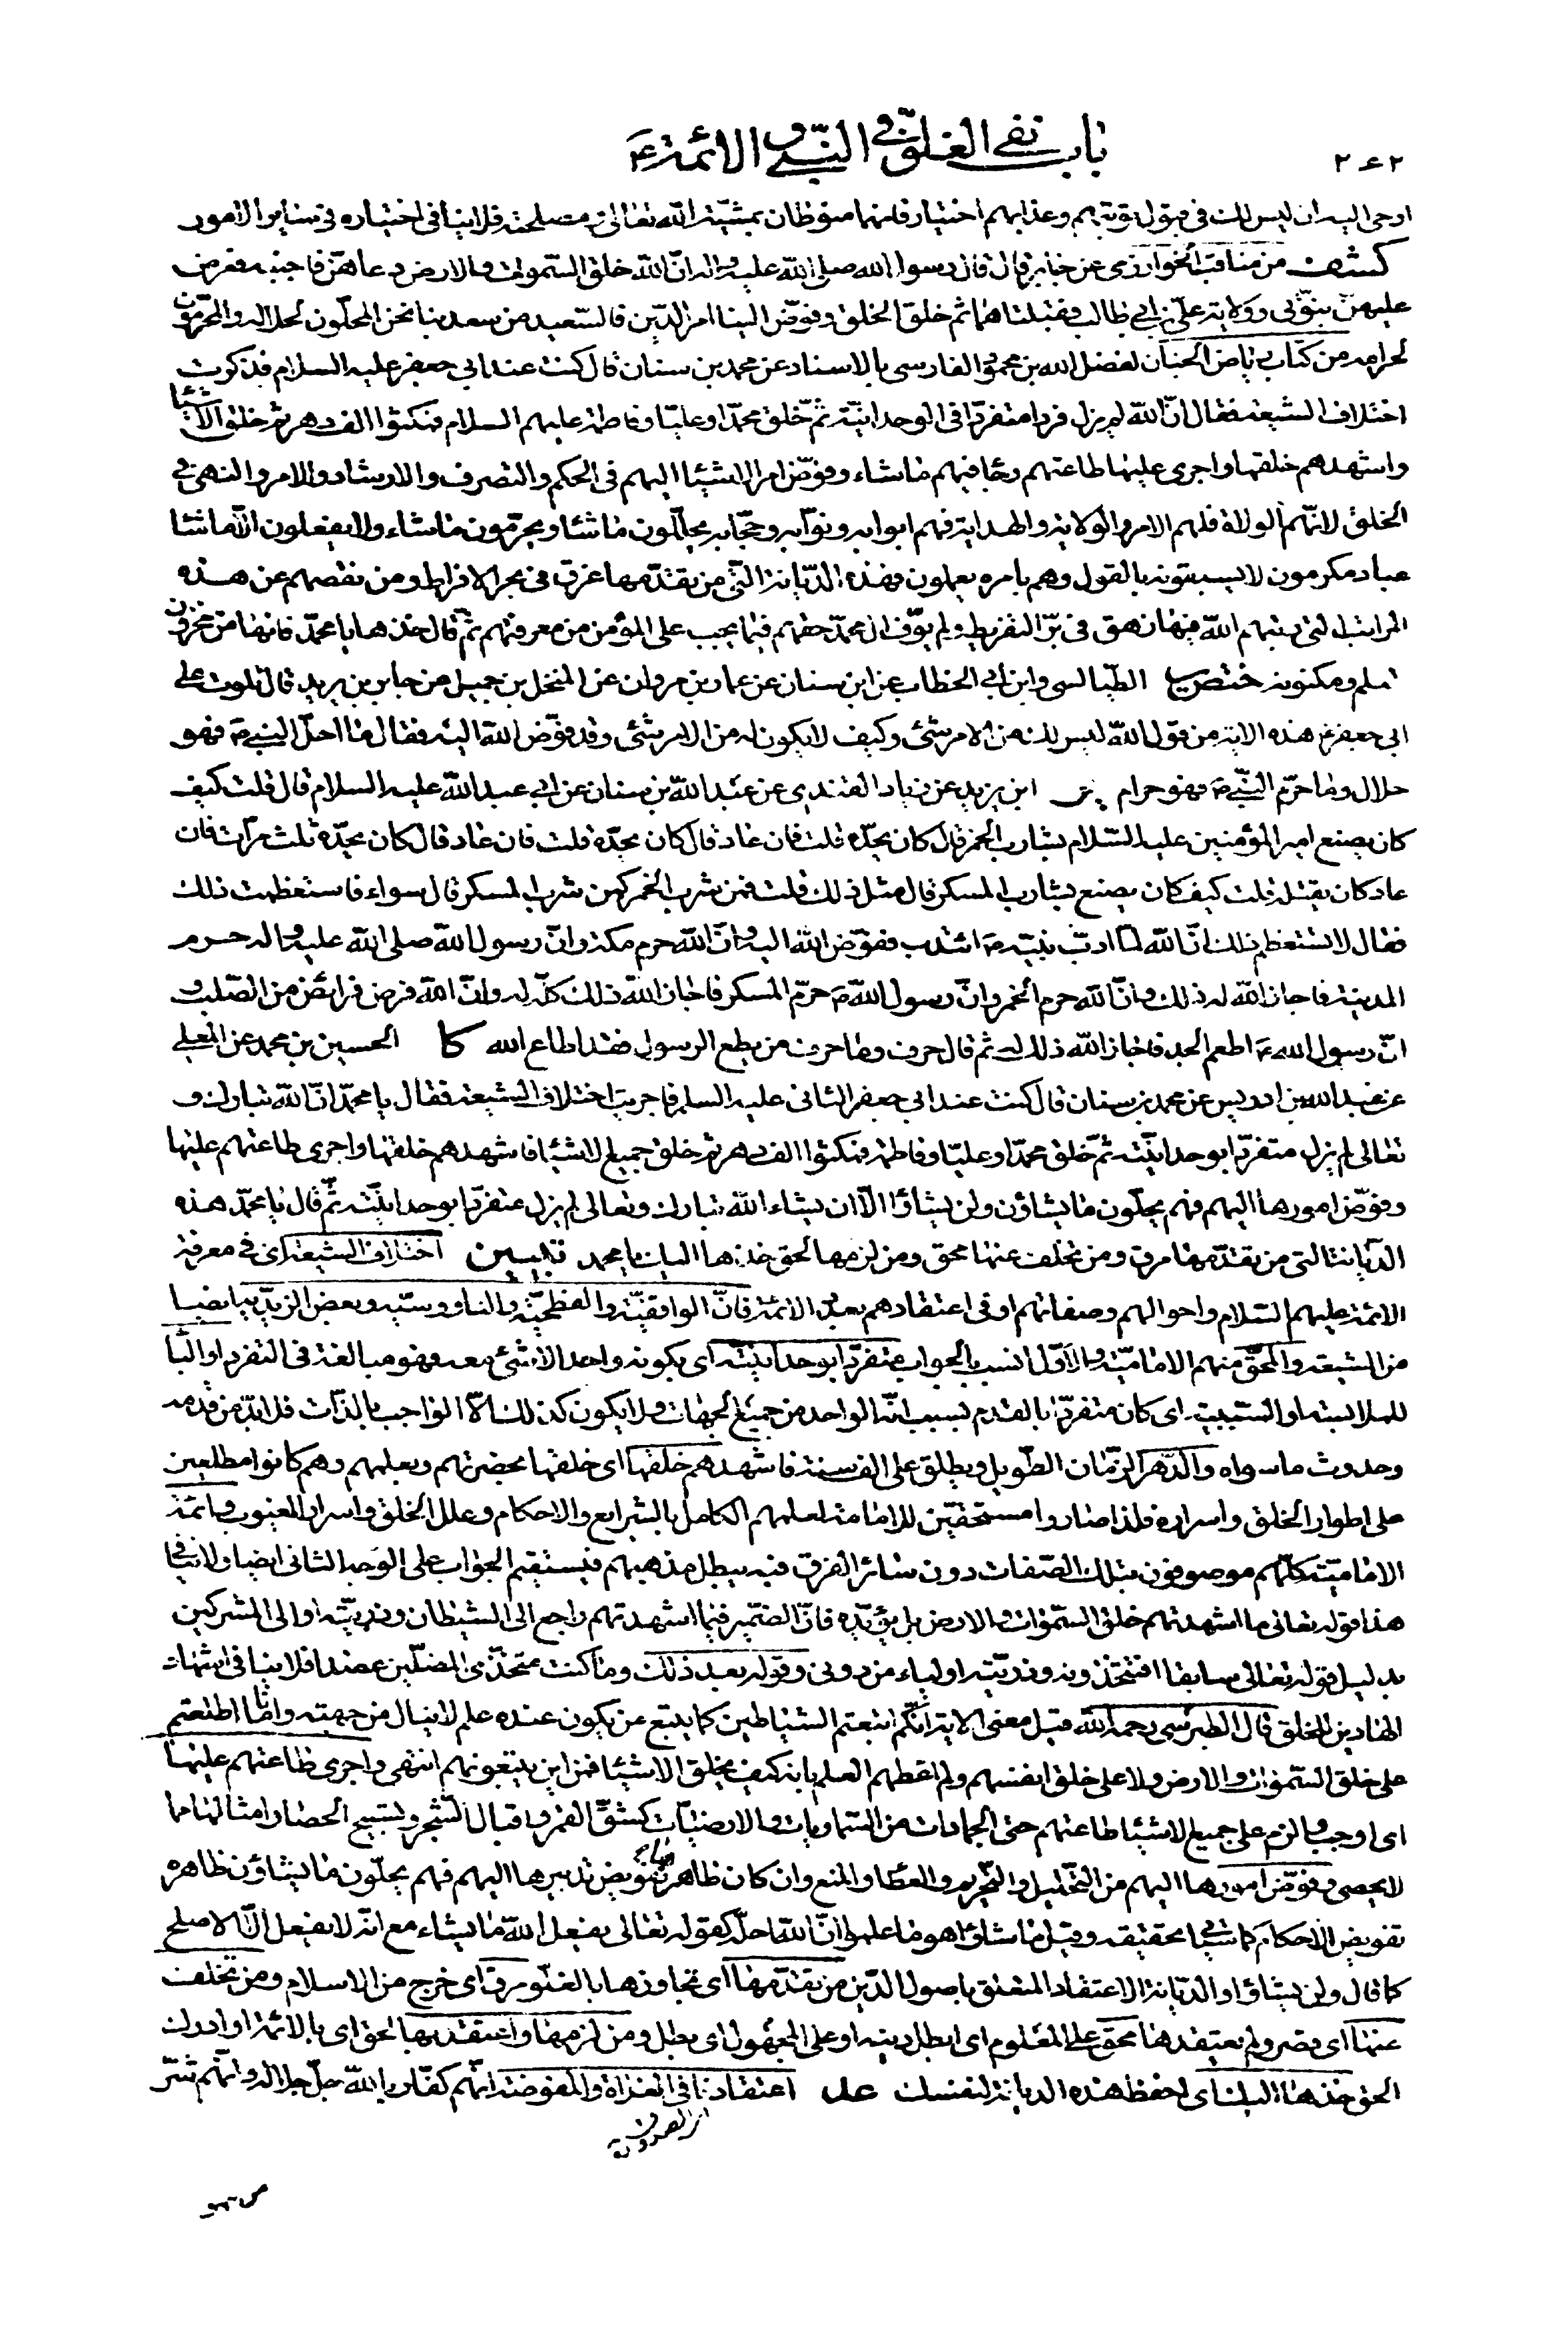 ۲۶۲
باب نفي الغلوّ في النبيّ و الائمة ع
اوحى اليه ان ليس لك في قبول توبتهم وعذابهم اختيار فانهما منوطان بمشيّة الله تعالى و مصلحته فلا ينافي اختياره في سائر الامور
كشف من مناقب الخوارزمي عن جابر قال قال رسول الله صلى الله عليه واله انّ الله خلق السّموات والارض دعاهنّ فاجبنه فعرض
عليهنّ نبوّتي وولاية عليّ بن ابي طالب فقبلتاهما ثم خلق الخلق وفوّض الينا امر الدّين فالسّعيد من سعد بنا نحن المحلّون لحلاله والمحرّمون
لحرامه من كتاب رياض الجنان لفضل الله بن محمود الفارسي بالاسناد عن محمد بن سنان قال كنت عند ابي جعفر عليه السلام فذكرت
اختلاف الشيعة فقال انّ الله لم يزل فردا متفرّدا في الوحدانيّة ثمّ خلق محمّدا وعليّا وفاطمة عليهم السلام فمكثوا الف دهر ثم خلق الاشيئا
واشهدهم خلقها واجرى عليها طاعتهم وجعل فيهم ماشاء وفوّض امر الاشيئا اليهم في الحكم والتصرف والارشاد والامر والنهي في
الخلق لانّهم الولاة فلهم الامر والولاية والهداية فهم ابوابه ونوّابه وحجّابه يحلّلون ماشئا ويحرّمون ماشاء ولا يفعلون الاّ ماشئا
عباد مكرمون لا يسبقونه بالقول وهم بامره يعملون فهذه الدّيانة الّتي من تقدّمها غرق في بحر الافراط ومن نقصهم عن هذه
المراتب التي رتبهم الله فيها زهق في برّ التفريط ولم يوّف ال محمّد حقهم فيما يجب على المؤمن من معرفتهم ثمّ قال خذها يا محمّد فانها من مخزون
العلم ومكنونه ختص ير الطّيالسي وابن ابي الخطاب عن ابن سنان عن عمار بن مروان عن المنخل بن جميل عن جابر بن يزيد قال تلوت على
ابي جعفر ع هذه الاية من قول الله ليس لك من الامر شئ وكيف لا يكون له من الامر شئ وقد فوّض الله اليه فقال ما احلّ النبي ص فهو
حلال وما حرّم النّبي ص فهو حرام ير ابن يزيد عن زياد القندي عن عبد الله بن سنان عن ابي عبد الله عليه السلام قال قلت كيف
كان يصنع امير المؤمنين عليه السّلام بشارب الخمر قال كان يحدّه قلت فان عاد قال كان يحدّه قلت فان عاد قال كان يحدّه ثلث مرّات فان
عاد كان يقتله قلت كيف كان يصنع بشارب المسكر قال مثل ذلك قلت فمن شرب الخمر كمن شرب المسكر قال سواء فاستعظمت ذلك
فقال لا تستعظم ذلك انّ الله لمّا ادّب نبيّه ص ائتدب ففوّض الله اليه وانّ الله حرم مكة وانّ رسول الله صلى الله عليه واله حرم
المدينة فاجاز الله له ذلك وانّ الله حرم الخمر وانّ رسول الله ص حرّم المسكر فاجاز الله ذلك كلّه له وانّ الله فرض فرائض من الصّلب و
انّ رسول الله ص اطعم الجد فاجاز الله ذلك له ثم قال حرف وما حرف من يطع الرسول فقد اطاع الله كا الحسين بن محمد عن المعلى
عن عبد الله بن ادريس عن محمد بن سنان قال كنت عند ابي جعفر الثاني عليه السلم فاجريت اختلاف الشيعة فقال يا محمّد انّ الله تبارك و
تعالى لم يزل متفرّدا بوحدانيّته ثمّ خلق محمّدا وعليّا وفاطمة فمكثوا الف دهر ثم خلق جميع الاشيئا فاشهدهم خلقها واجرى طاعتهم عليها
وفوّض امورها اليهم فهم يحلّون مايشاؤن ولن يشاؤا الاّ ان يشاء الله تبارك وتعالى لم يزل متفرّدا بوحدانيّته ثمّ قال يا محمّد هذه
الدّيانة التي من تقدّمها مرق ومن تخلف عنها محق ومن لزمها لحق خذها اليك يا محمد تبيين اختلاف الشيعة اي في معرفة
الائمة عليهم السّلام واحوالهم وصفاتهم او في اعتقادهم بعدد الائمة فانّ الواقفيّة والفطحيّة والناووسيّه وبعض الزيديّة ايضا
من الشيعة والمحقّ منهم الاماميّة والاوّل انسب بالجواب متفرّدا بوحدانيّته اي بكونه واحدا لا شئ معه وهو مبالغة في التفرد او البا
للملابسة او السّببيّة اي كان متفرّدا بالقدم بسبب انّه الواحد من جميع الجهات ولا يكون كذلك الاّ الواجب بالذّات فلا بدّ من قدمه
وحدوث ما سواه والدّهر الزّمان الطّويل ويطلق على الف سنة فاشهدهم خلقها اي خلقها بحضرتهم وبعلمهم وهم كانوا مطلعين
على اطوار الخلق واسراره فلذا صاروا مستحقّين للامامة لعلمهم الكامل بالشرايع والاحكام وعلل الخلق واسرار الغيوب وائمّة
الاماميّة كلّهم موصوفون بتلك الصّفات دون سائر الفرق فبه يبطل مذهبهم فيستقيم الجواب على الوجه الثاني ايضا ولا ينافي
هذا قوله تعالى ما اشهدتهم خلق السّموات والارض بل يؤيّده فانّ الضّمير في ما اشهدتهم راجع الى الشيطان وذريّته او الى المشركين
بدليل قوله تعالى سابقا افتتّخذونه وذريّته اولياء من دوني وقوله بعد ذلك وما كنت متّخذ المضلّين عضدا فلا ينافي اشهاد
الهادين للخلق قال الطبرسي رحمه الله قيل معنى الاية انّكم اتبعتم الشياطين كما يتبع من يكون عنده علم لا ينال من جهته وانا ما اطلعتهم
على خلق السّموات والارض ولا على خلق انفسهم ولم اعطهم العلم بانه كيف يخلق الاشيئا فمن اين يتبعونهم انتهى واجرى طاعتهم عليها
اي اوجب والزم على جميع الاشيئا طاعتهم حتى الجمادات من السّماويات والارضيّات كشقّ القمر واقبال الشّجر وتسبيح الحصا وامثالها مما
لا يحصى وفوّض امورها اليهم من التحليل والتّحريم والعطا والمنع وان كان ظاهرها تفويض تدبيرها اليهم فهم يحلّون ما يشاؤن ظاهره
تفويض الاحكام كما سيأتي تحقيقه وقيل ما شاؤا هو ما علموا انّ الله احلّه كقوله تعالى يفعل الله ما يشاء مع انّه لا يفعل الاّ الاصلح
كما قال ولن يشاؤا والدّيانة الاعتقاد المتعلق باصول الدّين من تقدّمها اي تجاوزها بالغلوّ مرق اي خرج من الاسلام ومن تخلف
عنها اي قصر ولم يعتقدها محق على المعلوم اي ابطل دينه او على المجهول اي بطل ومن لزمها واعتقد بها لحق اي بالائمة او ادرك
الحق خذها اليك اي احفظ هذه الديانة لنفسك عد اعتقادنا في الغلاة والمفوضة انّهم كفّار بالله جلّ جلاله وانّهم شرّ